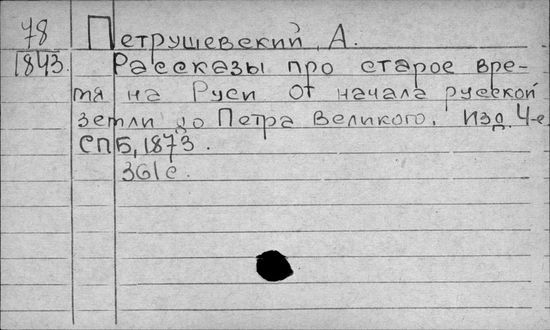 78 Петрушевский, А.
1843. Рассказы про старое вре-
мя на Руси от начала русской
земли до Петра Великого. Изд. 4-е
СПБ, 1873.
361 с.